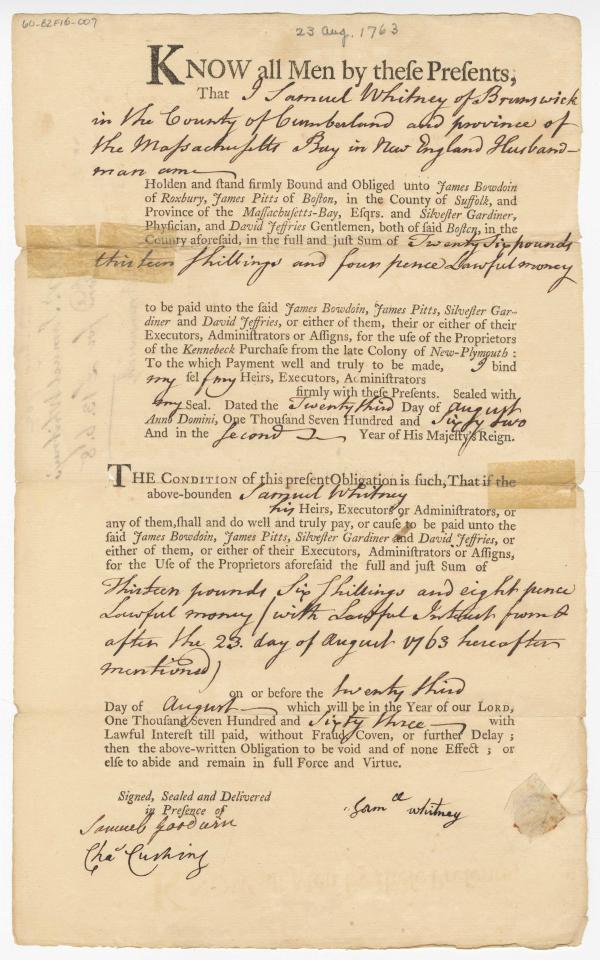 60-B2F16-007
23 Aug. 1763
KNOW all Men by theſe Preſents,
That I Samuel Whitney of Brunswick
in the County of Cumberland and province of
the Massachusetts Bay in New England Husband-
man am
Holden and ſtand firmly Bound and Obliged unto James Bowdoin
of Roxbury, James Pitts of Boſton, in the County of Suffolk, and
Province of the Maſſachuſetts-Bay, Eſqrs. and Silveſter Gardiner,
Phyſician, and David Jeffries Gentlemen, both of ſaid Boſton, in the
County aforeſaid, in the full and juſt Sum of Twenty Six pounds
thirteen Shillings and four pence Lawful money
to be paid unto the ſaid James Bowdoin, James Pitts, Silveſter Gar-
diner and David Jeffries, or either of them, their or either of their
Executors, Adminiſtrators or Aſſigns, for the uſe of the Proprietors
of the Kennebeck Purchaſe from the late Colony of New-Plymouth :
To the which Payment well and truly to be made, I bind
my ſelf my Heirs, Executors, Adminiſtrators
firmly with theſe Preſents. Sealed with
my Seal. Dated the Twenty third Day of August
Anno Domini, One Thouſand Seven Hundred and Sixty two
And in the Second Year of His Majeſty's Reign.
THE CONDITION of this preſent Obligation is ſuch, That if the
above-bounden Samuel Whitney
his Heirs, Executors or Adminiſtrators, or
any of them, ſhall and do well and truly pay, or cauſe to be paid unto the
ſaid James Bowdoin, James Pitts, Silveſter Gardiner and David Jeffries, or
either of them, or either of their Executors, Adminiſtrators or Aſſigns,
for the Uſe of the Proprietors aforeſaid the full and juſt Sum of
Thirteen pounds Six Shillings and eight pence
Lawful money (with Lawful Interest from &
after the 23. day of August 1763 hereafter
mentioned)
on or before the twenty third
Day of August which will be in the Year of our LORD,
One Thouſand Seven Hundred and Sixty three with
Lawful Intereſt till paid, without Fraud, Coven, or further Delay ;
then the above-written Obligation to be void and of none Effect ; or
elſe to abide and remain in full Force and Virtue.
Signed, Sealed and Delivered
in Preſence of
Samll Whitney
Samuel Goodwin
Chas Cushing